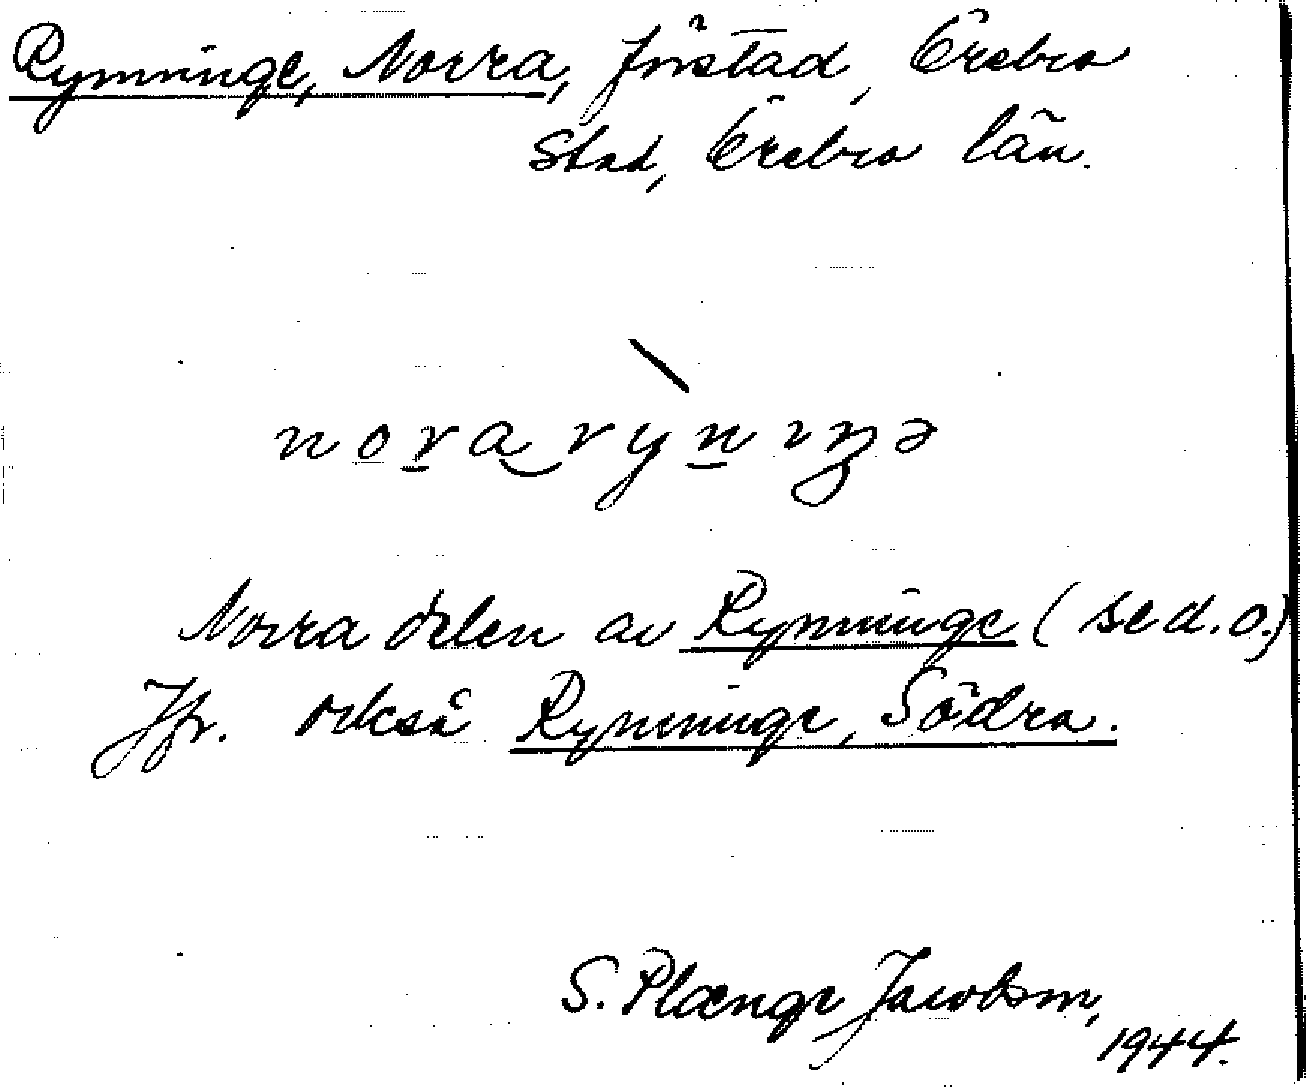 Rynninge, Norra, förstad, Örebro
stad, Örebro län.
Norra delen av Rynninge (se d. o.)
Jfr. också Rynninge, Södra.
S. Plænge Jacobson,
1944.